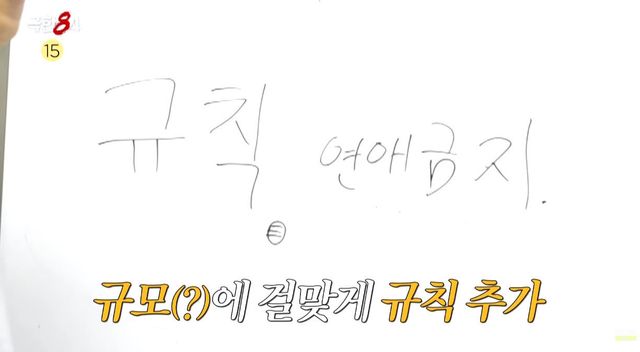 극한84
15
규칙 연애금지.
규모(?)에 걸맞게 규칙 추가